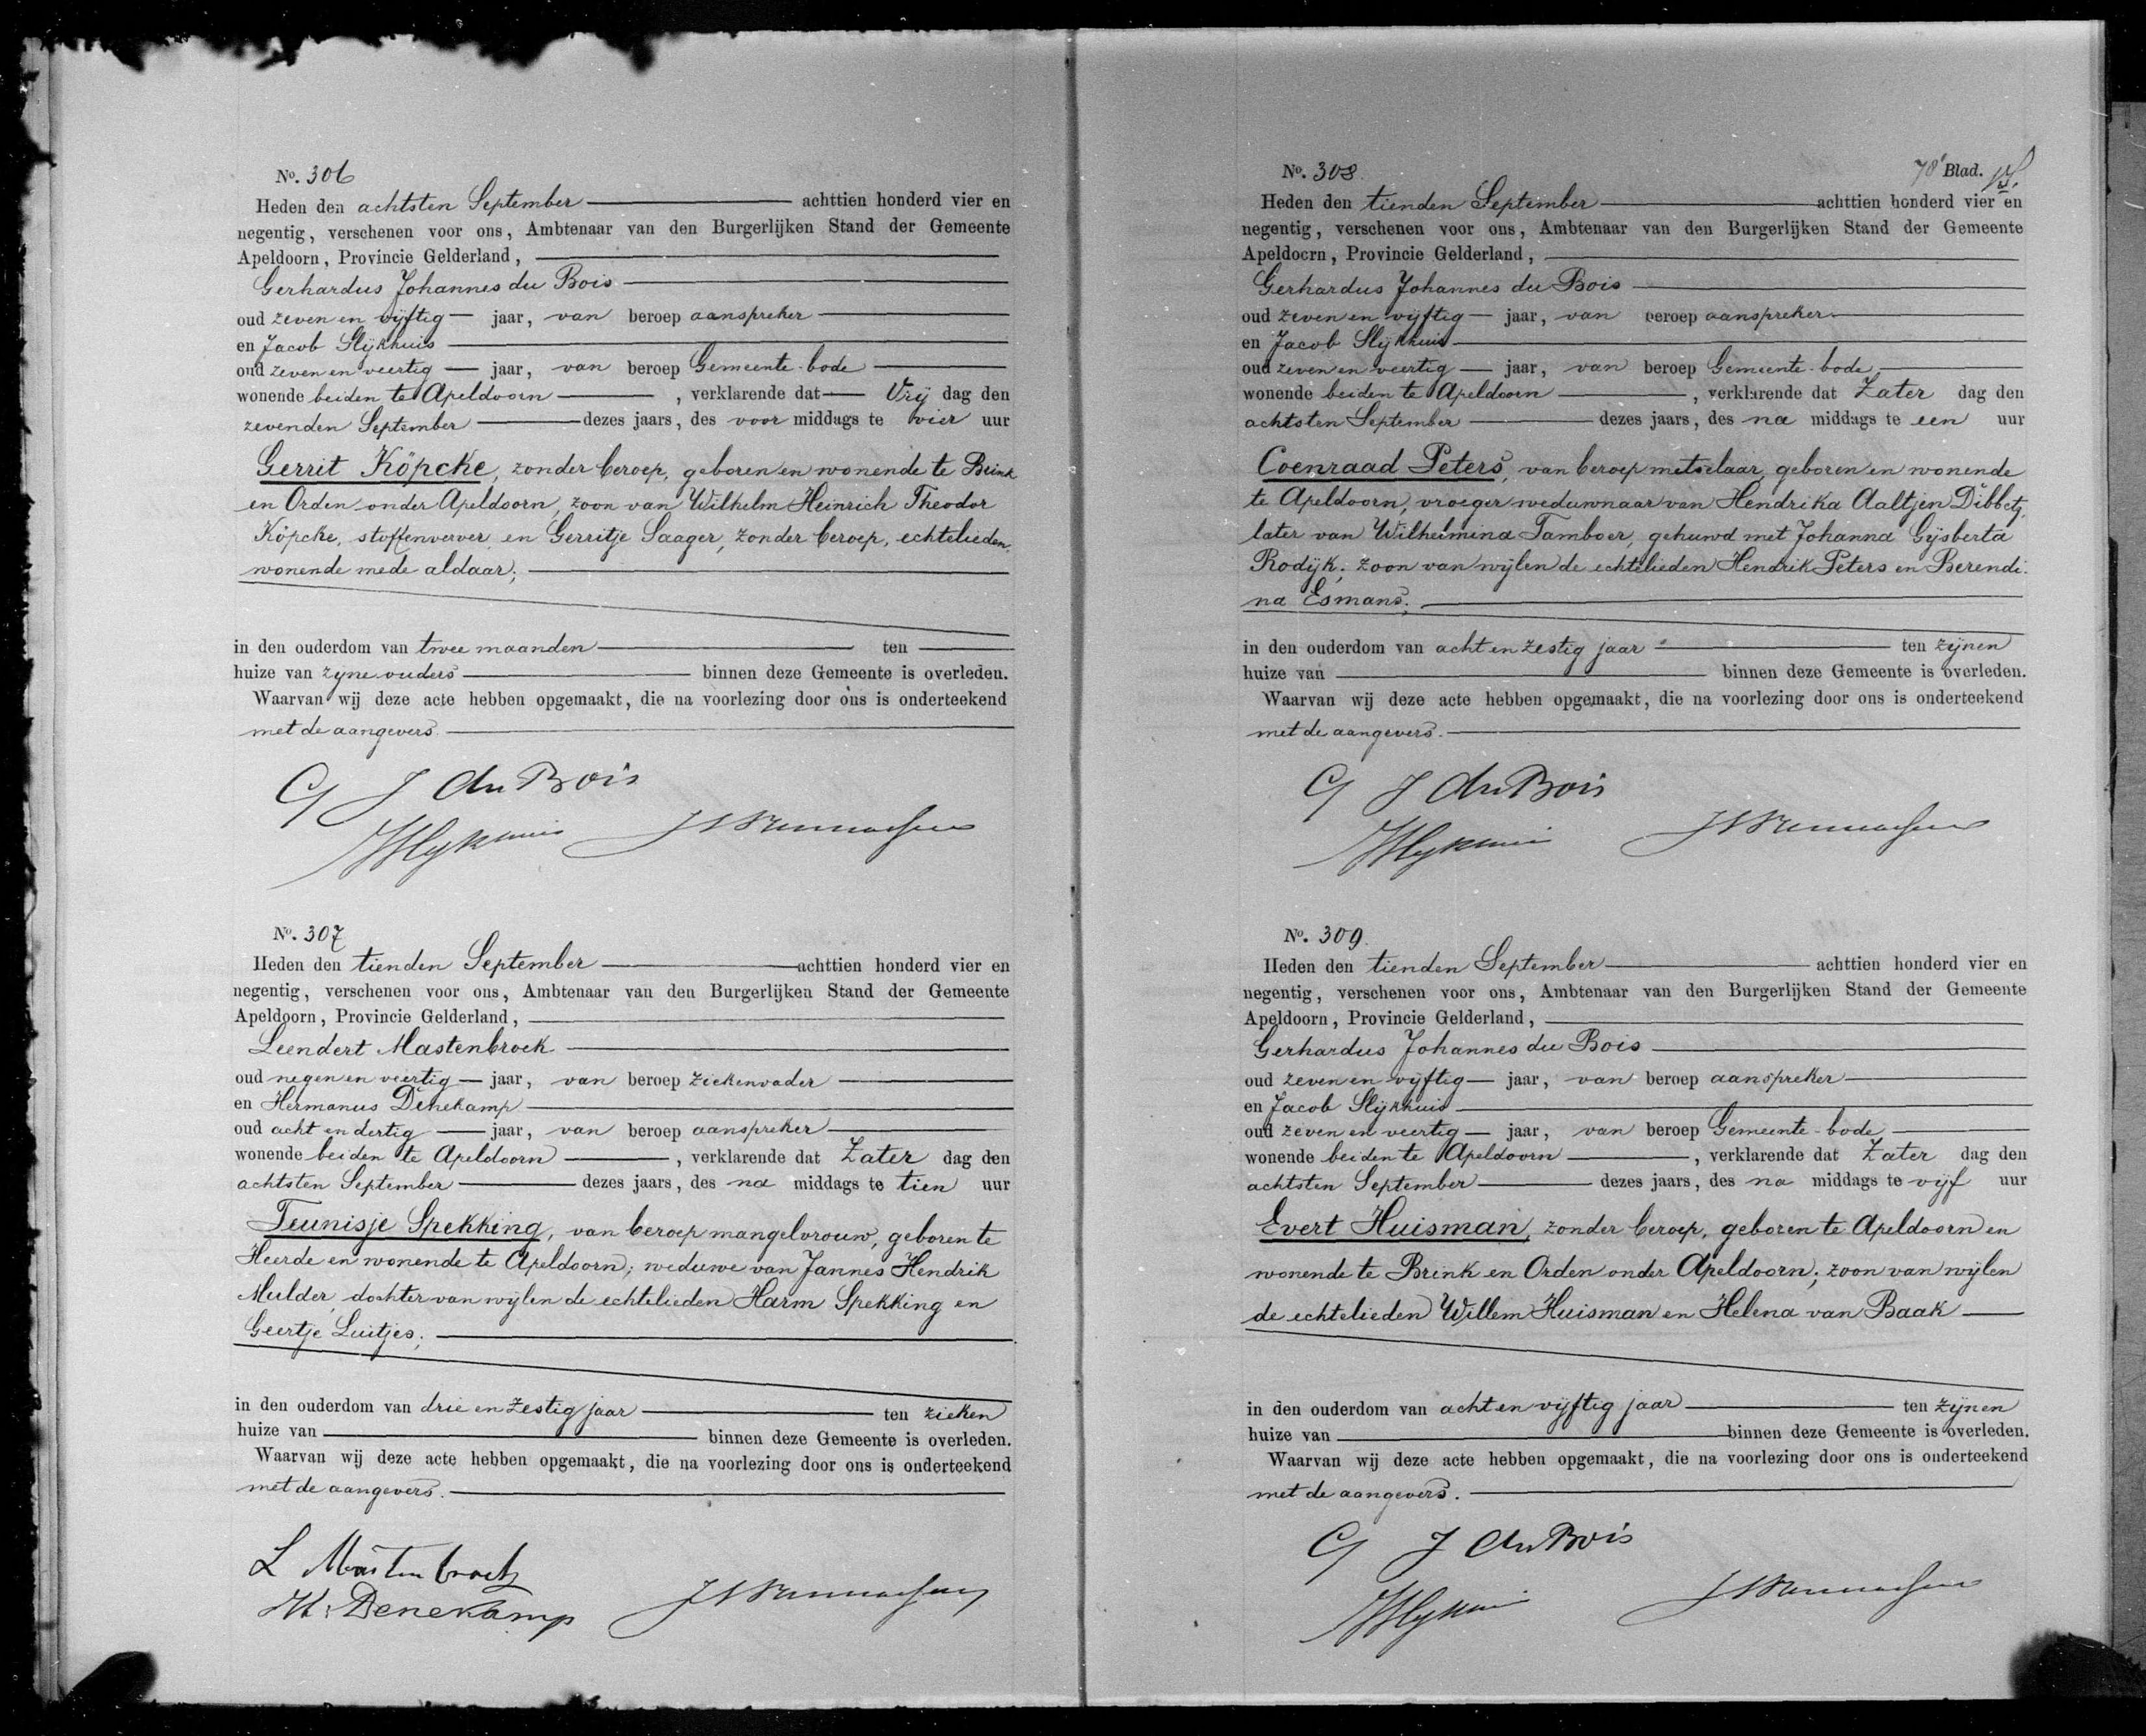 No. 306
Heden den achtsten September achttien honderd vier en
negentig, verschenen voor ons, Ambtenaar van den Burgerlijken Stand der Gemeente
Apeldoorn, Provincie Gelderland,
Gerhardus Johannes du Bois
oud zeven en vijftig jaar, van beroep aanspreker
en Jacob Slijkhuis
oud zeven en veertig jaar, van beroep Gemeente-bode
wonende beiden te Apeldoorn, verklarende dat Vrij dag den
zevenden September dezes jaars, des voor middags te vier uur
Gerrit Köpcke, zonder beroep, geboren en wonende te Brink
en Orden onder Apeldoorn, zoon van Wilhelm Heinrich Theodor
Köpcke, stoffenverver en Gerritje Saager, zonder beroep, echtelieden,
wonende mede aldaar;
in den ouderdom van twee maanden ten
huize van zijne ouders binnen deze Gemeente is overleden.
Waarvan wij deze acte hebben opgemaakt, die na voorlezing door ons is onderteekend
met de aangevers.
G J du Bois
JSlijkhuis
No. 307
Heden den tienden September achttien honderd vier en
negentig, verschenen voor ons, Ambtenaar van den Burgerlijken Stand der Gemeente
Apeldoorn, Provincie Gelderland,
Leendert Mastenbroek
oud negen en veertig jaar, van beroep ziekenvader
en Hermanus Denekamp
oud acht en dertig jaar, van beroep aanspreker
wonende beiden te Apeldoorn, verklarende dat Zater dag den
achtsten September dezes jaars, des na middags te tien uur
Teunisje Spekking, van beroep mangelvrouw, geboren te
Heerde en wonende te Apeldoorn; weduwe van Jannes Hendrik
Mulder, dochter van wijlen de echtelieden Harm Spekking en
Geertje Luitjes;
in den ouderdom van drie en zestig jaar ten zieken
huize van binnen deze Gemeente is overleden.
Waarvan wij deze acte hebben opgemaakt, die na voorlezing door ons is onderteekend
met de aangevers.
L Mastenbroek
H. Denekamp
78e Blad.
No. 308
Heden den tienden September achttien honderd vier en
negentig, verschenen voor ons, Ambtenaar van den Burgerlijken Stand der Gemeente
Apeldoorn, Provincie Gelderland,
Gerhardus Johannes du Bois
oud zeven en vijftig jaar, van beroep aanspreker
en Jacob Slijkhuis
oud zeven en veertig jaar, van beroep Gemeente-bode
wonende beiden te Apeldoorn, verklarende dat Zater dag den
achtsten September dezes jaars, des na middags te een uur
Coenraad Peters, van beroep metselaar, geboren en wonende
te Apeldoorn, vroeger weduwnaar van Hendrika Aaltjen Dibbetz,
later van Wilhelmina Tamboer, gehuwd met Johanna Gijsberta
Rodijk; zoon van wijlen de echtelieden Hendrik Peters en Berendi-
na Esmans;
in den ouderdom van acht en zestig jaar ten zijnen
huize van binnen deze Gemeente is overleden.
Waarvan wij deze acte hebben opgemaakt, die na voorlezing door ons is onderteekend
met de aangevers.
G J du Bois
JSlijkhuis
No. 309
Heden den tienden September achttien honderd vier en
negentig, verschenen voor ons, Ambtenaar van den Burgerlijken Stand der Gemeente
Apeldoorn, Provincie Gelderland,
Gerhardus Johannes du Bois
oud zeven en vijftig jaar, van beroep aanspreker
en Jacob Slijkhuis
oud zeven en veertig jaar, van beroep Gemeente-bode
wonende beiden te Apeldoorn, verklarende dat Zater dag den
achtsten September dezes jaars, des na middags te vijf uur
Evert Huisman, zonder beroep, geboren te Apeldoorn en
wonende te Brink en Orden onder Apeldoorn; zoon van wijlen
de echtelieden Willem Huisman en Helena van Baak
in den ouderdom van acht en vijftig jaar ten zijnen
huize van binnen deze Gemeente is overleden.
Waarvan wij deze acte hebben opgemaakt, die na voorlezing door ons is onderteekend
met de aangevers.
G J du Bois
JSlijkhuis